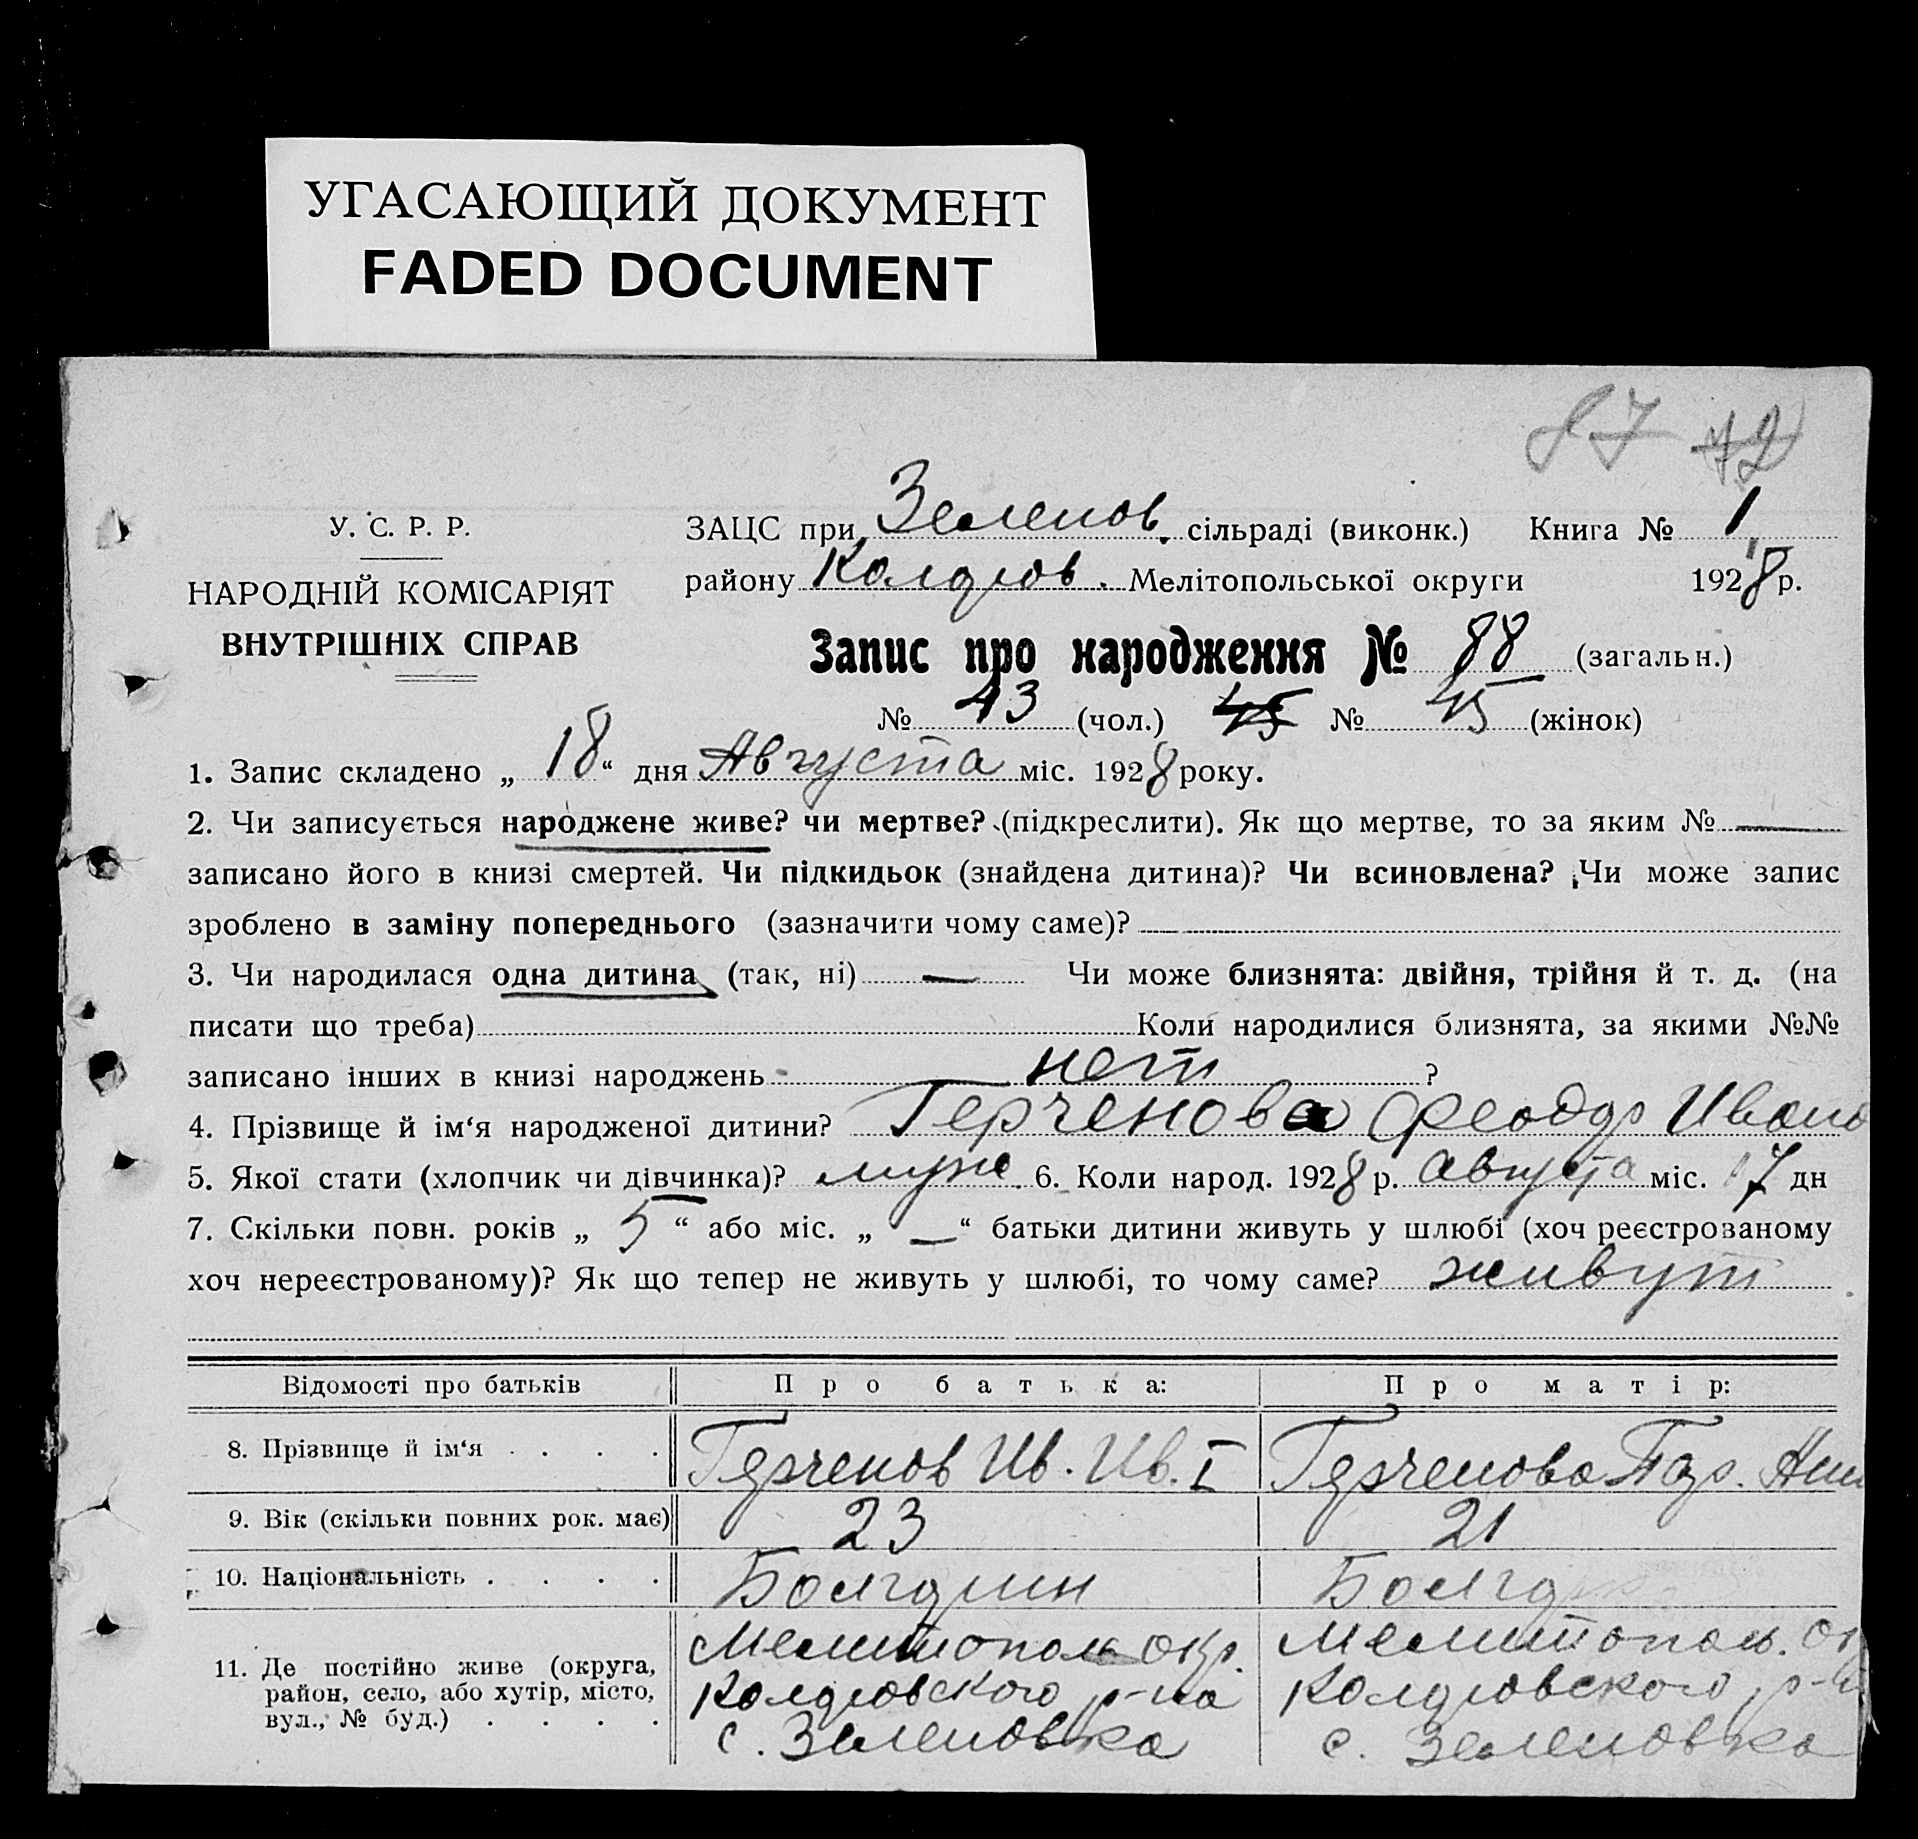 УГАСАЮЩИЙ ДОКУМЕНТ
FADED DOCUMENT
87 42
У. С. Р. Р.
НАРОДНІЙ КОМІСАРІЯТ
ВНУТРІШНІХ СПРАВ
ЗАЦС при Зеленов. сільраді (виконк.) Книга № 1
району Коларов. Мелітопольської округи 1928 р.
Запис про народження № 88 (загальн.)
№ 43 (чол.) 45 № 45 (жінок)
1. Запис складено „ 18 “ дня Августа міс. 1928 року.
2. Чи записується народжене живе? чи мертве? (підкреслити). Як що мертве, то за яким № —
записано його в книзі смертей. Чи підкидьок (знайдена дитина)? Чи всиновлена? Чи може запис
зроблено в заміну попереднього (зазначити чому саме)? —
3. Чи народилася одна дитина (так, ні) — Чи може близнята: двійня, трійня й т. д. (на
писати що треба) Коли народилися близнята, за якими №№
записано інших в книзі народжень нет ?
4. Прізвище й ім‘я народженої дитини? Герченова Феодор Ивано
5. Якої стати (хлопчик чи дівчинка)? муж. 6. Коли народ. 1928 р. августа міс. 17 дн
7. Скільки повн. років „ 5 “ або міс. „ — “ батьки дитини живуть у шлюбі (хоч реєстрованому
хоч нереєстрованому)? Як що тепер не живуть у шлюбі, то чому саме? живут
Відомості про батьків Про батька: Про матір:
8. Прізвище й ім‘я . . . . Гярченов Ив. Ив. I Гярченова Пар.
9. Вік (скільки повних рок. має) 23 21
10. Національність . . . . Болгарин Болгар
11. Де постійно живе (округа, район, село, або хутір, місто, вул., № буд.) . . . .
Мелитополь окр. Мелитополь. ок
Коларовского р-на Коларовского р-н
с. Зеленовка с. Зеленовка